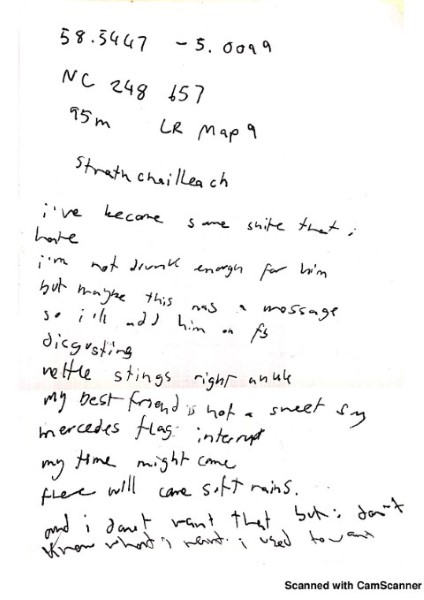 58.5447 -5.0099
NC 248 657
95m LR Map 9
Strathchailleach
i've become some shite that i
hate
i'm not drunk enough for him
but maybe this was a message
so i'll add him on fb
disgusting
nettle stings right ankle
my best friend is not a sweet
mercedes flag interrupt
my time might come
there will come soft rains.
and i don't want that but i don't
know what i want. i used to
Scanned with CamScanner